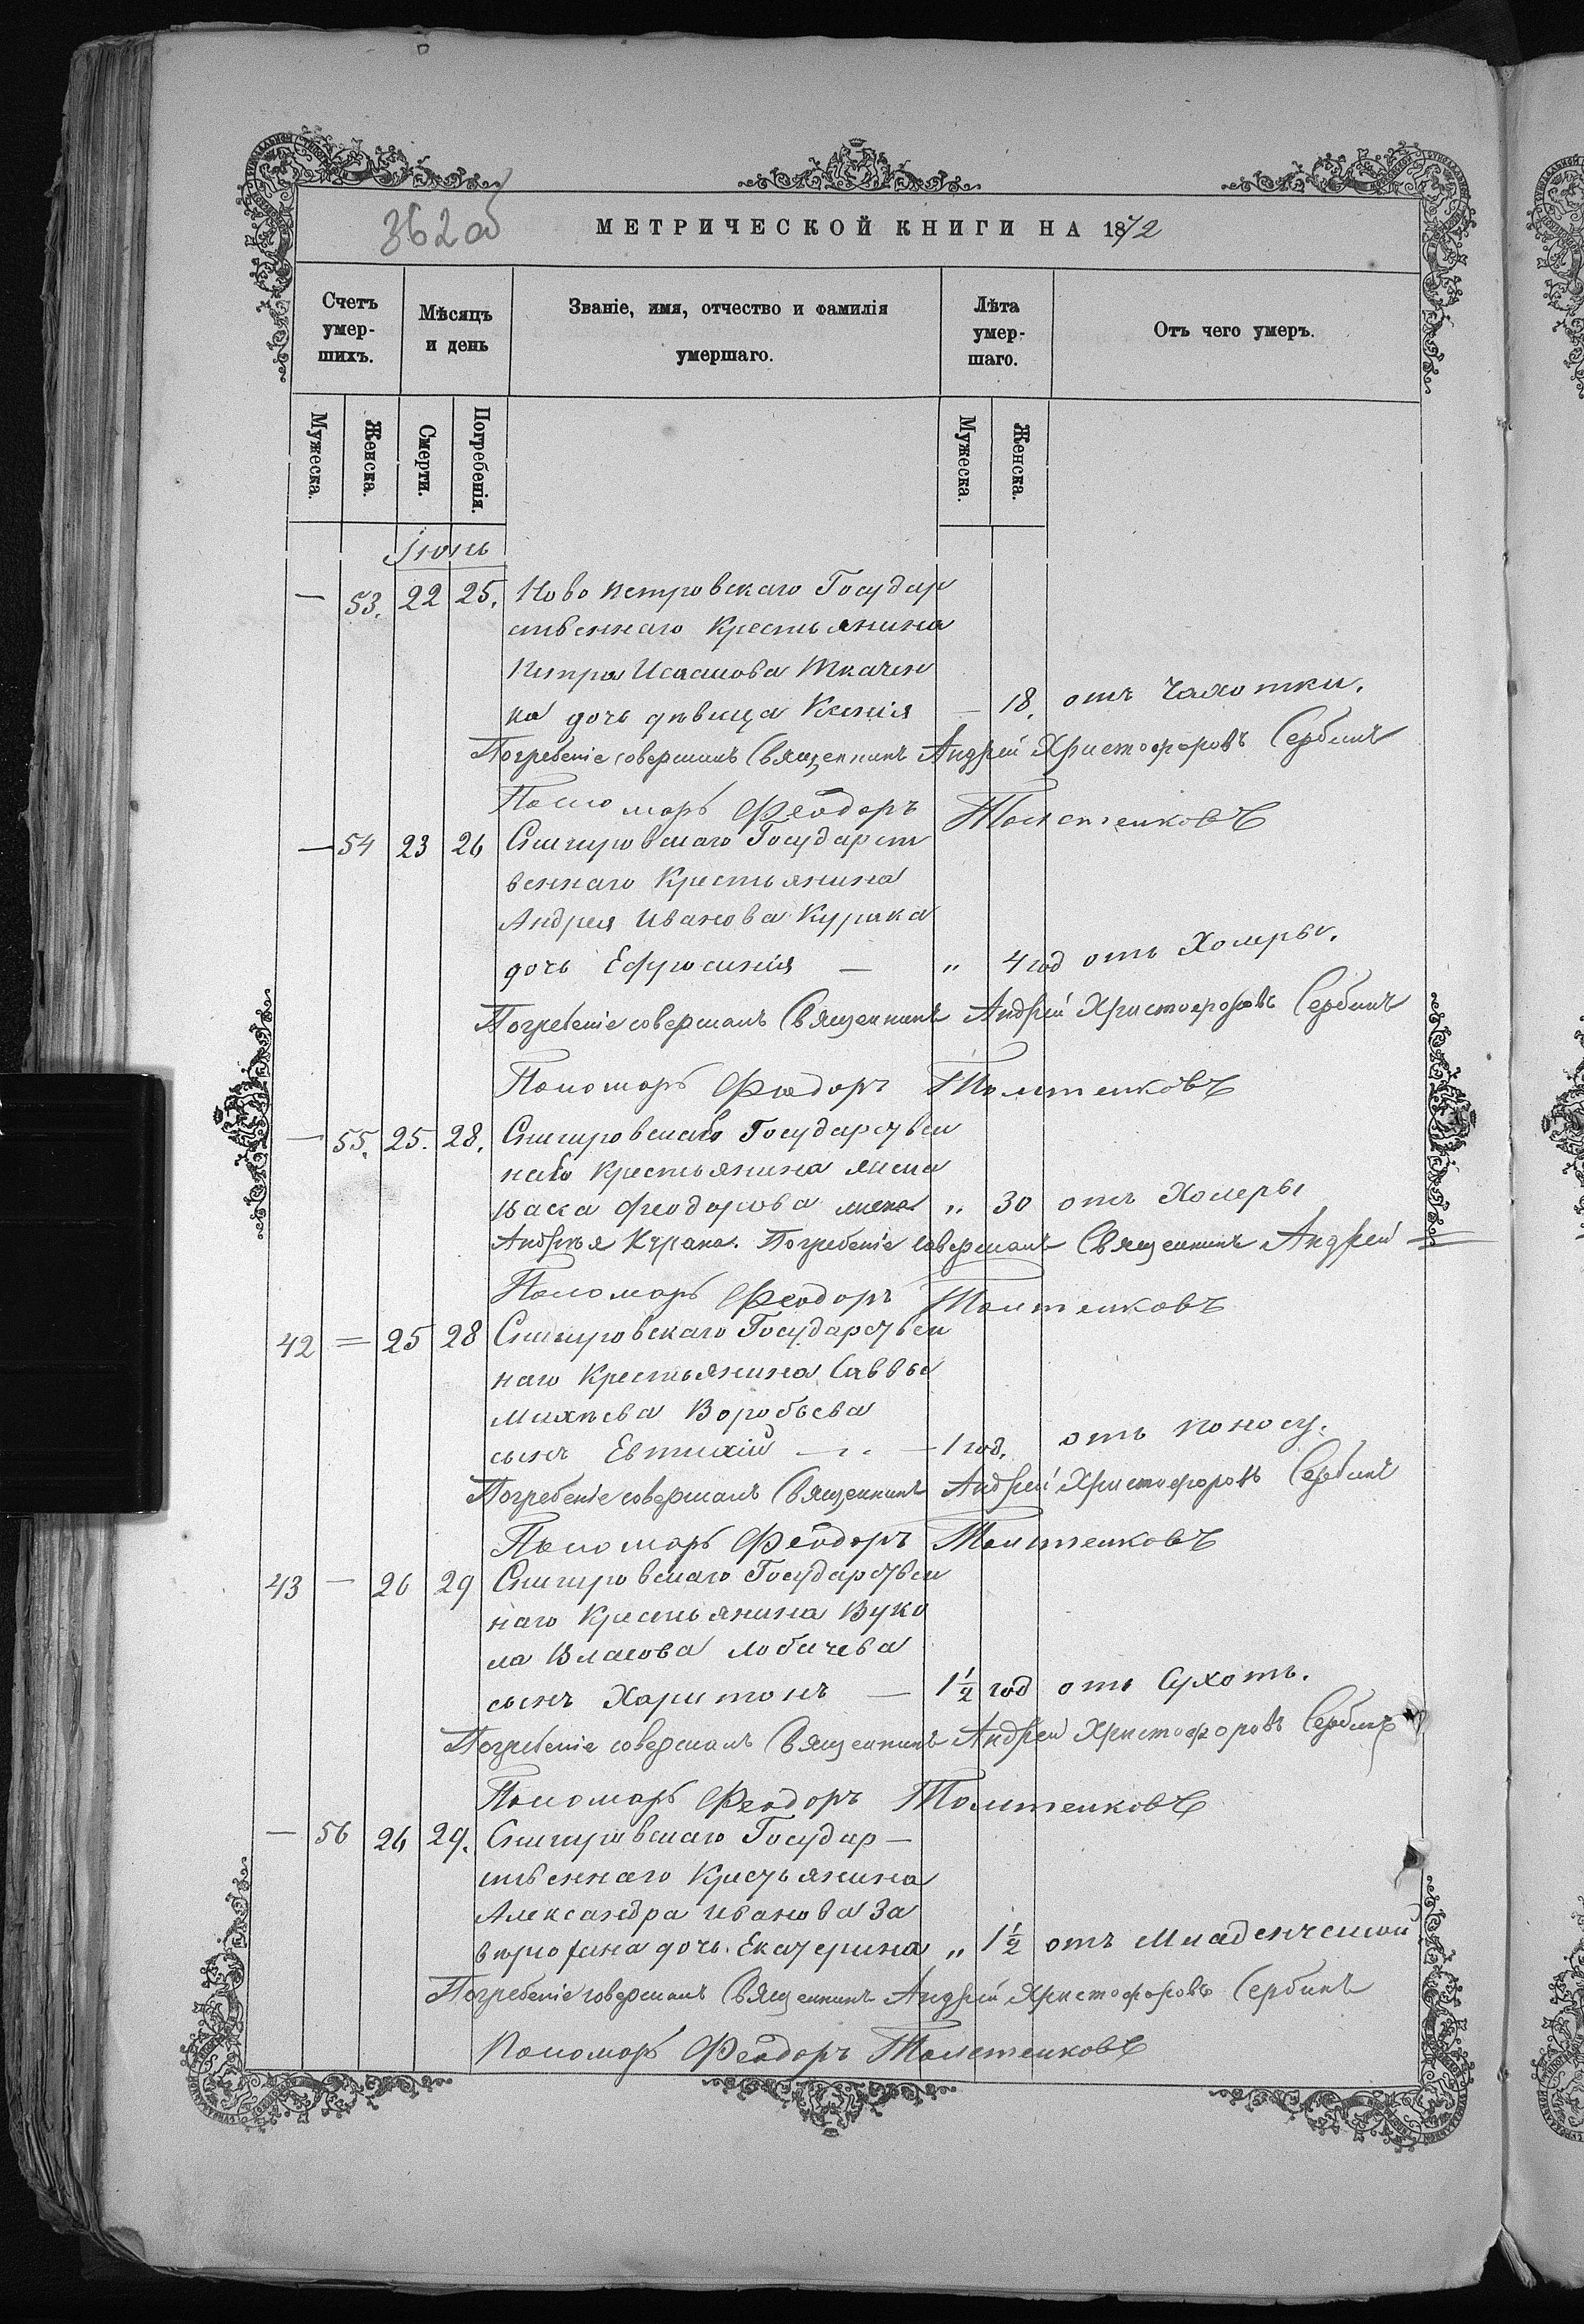 362 об
МЕТРИЧЕСКОЙ КНИГИ НА 1872
Счетъ умер-шихъ.
Мѣсяцъ и день
Званіе, имя, отчество и фамилія умершаго.
Лѣта умер-шаго.
Отъ чего умеръ.
Мужеска.
Женска.
Смерти.
Погребенія.
Мужеска.
Женска.
Іюнь
— 53. 22 25. Ново Петровскаго Государ
ственнаго Крестьянина
Петра Исаакова Ткачен
ка дочь дѣвица Ксенія — 18. отъ Чахотки.
Погребеніе совершалъ Священникъ Андрей Христофоровъ Сербинъ
Пономарь Феодоръ Толстенковъ
— 54 23 26 Снигировскаго Государст
веннаго Крестьянина
Андрея Иванова Курака
дочь Ефросинія — „ 4 год отъ Холеры.
Погребеніе совершалъ Священникъ Андрей Христофоровъ Сербинъ
Пономарь Феодоръ Толстенковъ
— 55. 25. 28. Снигировскаго Государствен
наго Крестьянина
Феодорова „ 30 отъ Холеры
Андрея Курака. Погребеніе совершалъ Священникъ Андрей
Пономарь Феодоръ Толстенковъ
42 = 25 28 Снигировскаго Государствен
наго Крестьянина Саввы
Михѣева Воробьева
сынъ Евтихій — 1 год. отъ поносу.
Погребеніе совершалъ Священникъ Андрей Христофоровъ Сербинъ
Пономарь Феодоръ Толстенковъ
43 — 26 29 Снигировскаго Государствен
наго Крестьянина Вуко
ла Власова Лобачева
сынъ Харитонъ — 1½ год отъ Сухотъ.
Погребеніе совершалъ Священникъ Андрей Христофоровъ Сербинъ
Пономарь Феодоръ Толстенковъ
— 56 26 29. Снигировскаго Государ—
ственнаго Крестьянина
Александра Иванова За
дочь Екатерина „ 1½ отъ Младенческой
Погребеніе совершалъ Священникъ Андрей Христофоровъ Сербинъ
Пономарь Феодоръ Толстенковъ